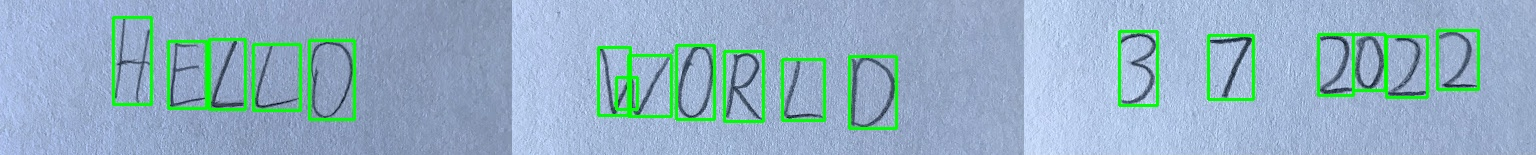 HELLO WORLD 3 7 2022